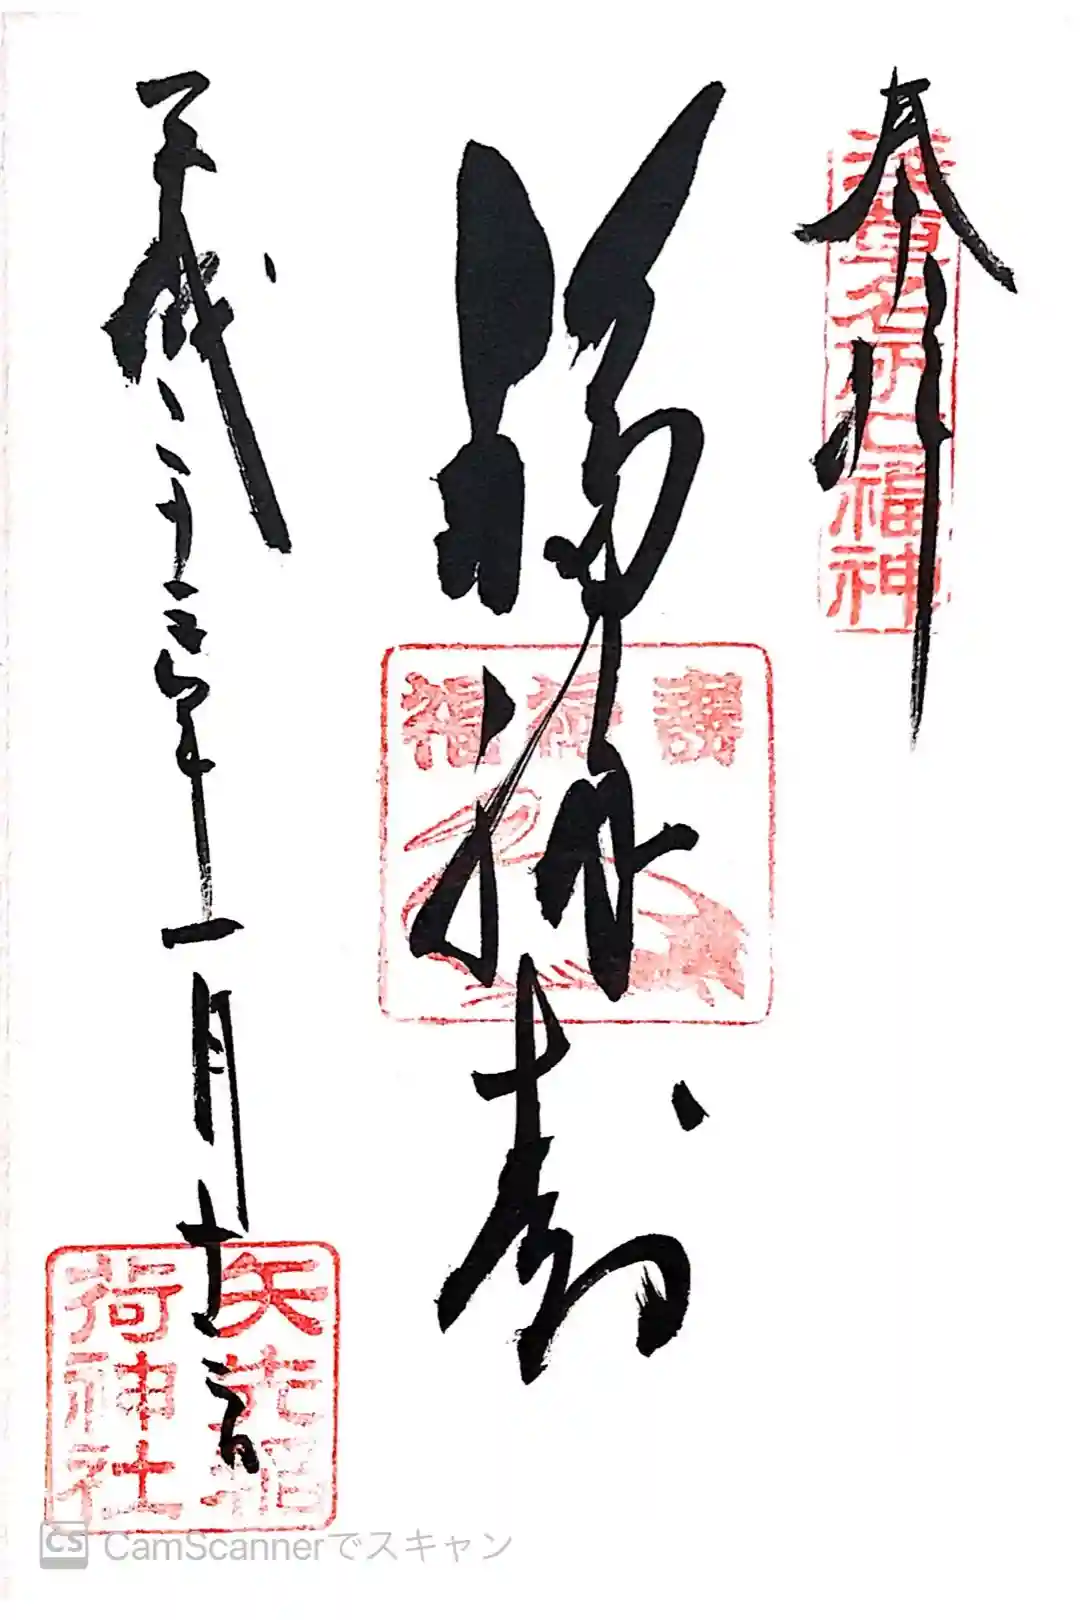 奉拝
浅草名所七福神
福禄寿
福禄壽
平成二十三年一月十日
矢先稲
荷神社
CS CamScannerでスキャン